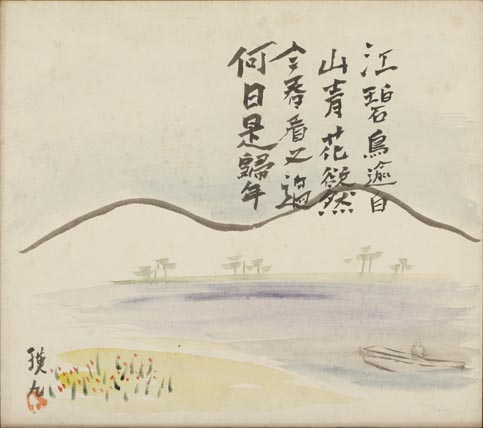 江碧鳥逾白
山青花欲然
今春看又過
何日是歸年
瑛九